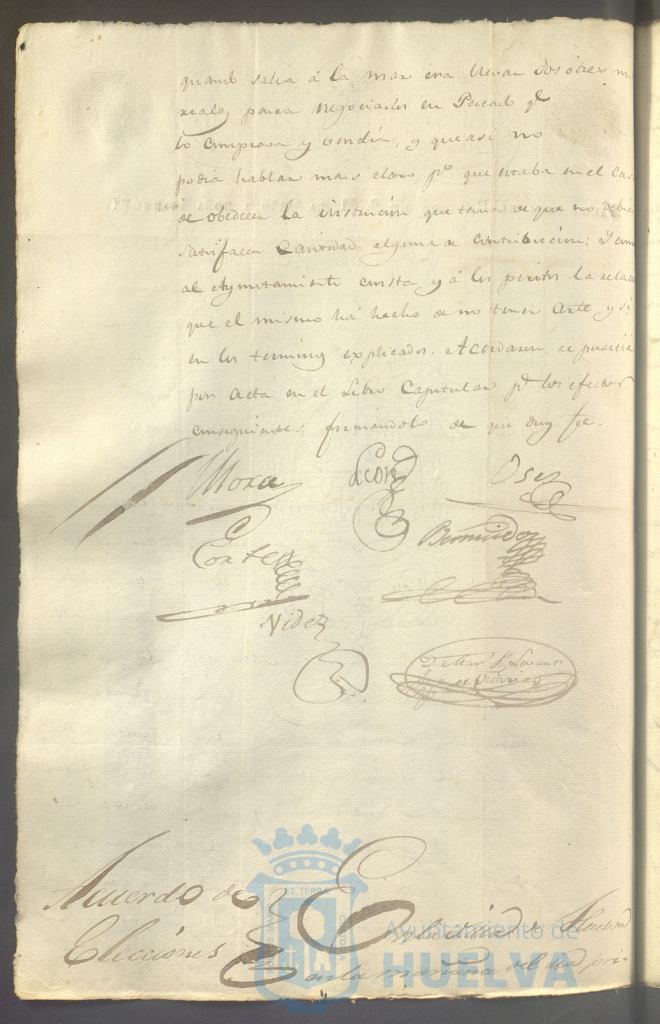 quando salia á la mar era llevar dos ó tres mil
reales para negociarlos en Pescado qe
lo compraba y vendia, y que asi no
podia hablar mas claro pr. que estaba en el Caso
de obedecer la instrucción que tenia de que no debia
satisfacer Cantidad alguna de Contribución: Y como
al Ayuntamiento consta y á los peritos la relacn
que el mismo há hecho de no tener Arte y si
en los terminos explicados. Acordaron, se pusiese
por Acta en el Libro Capitular pa. los efectos
consiguientes firmandolo de que doy fe.
Mora León
Cortes Bermudez
Videz
Acuerdo de
Elecciones
En la ciudad de Huelva
en la mañana del dia pri-
Ayuntamiento de
HUELVA